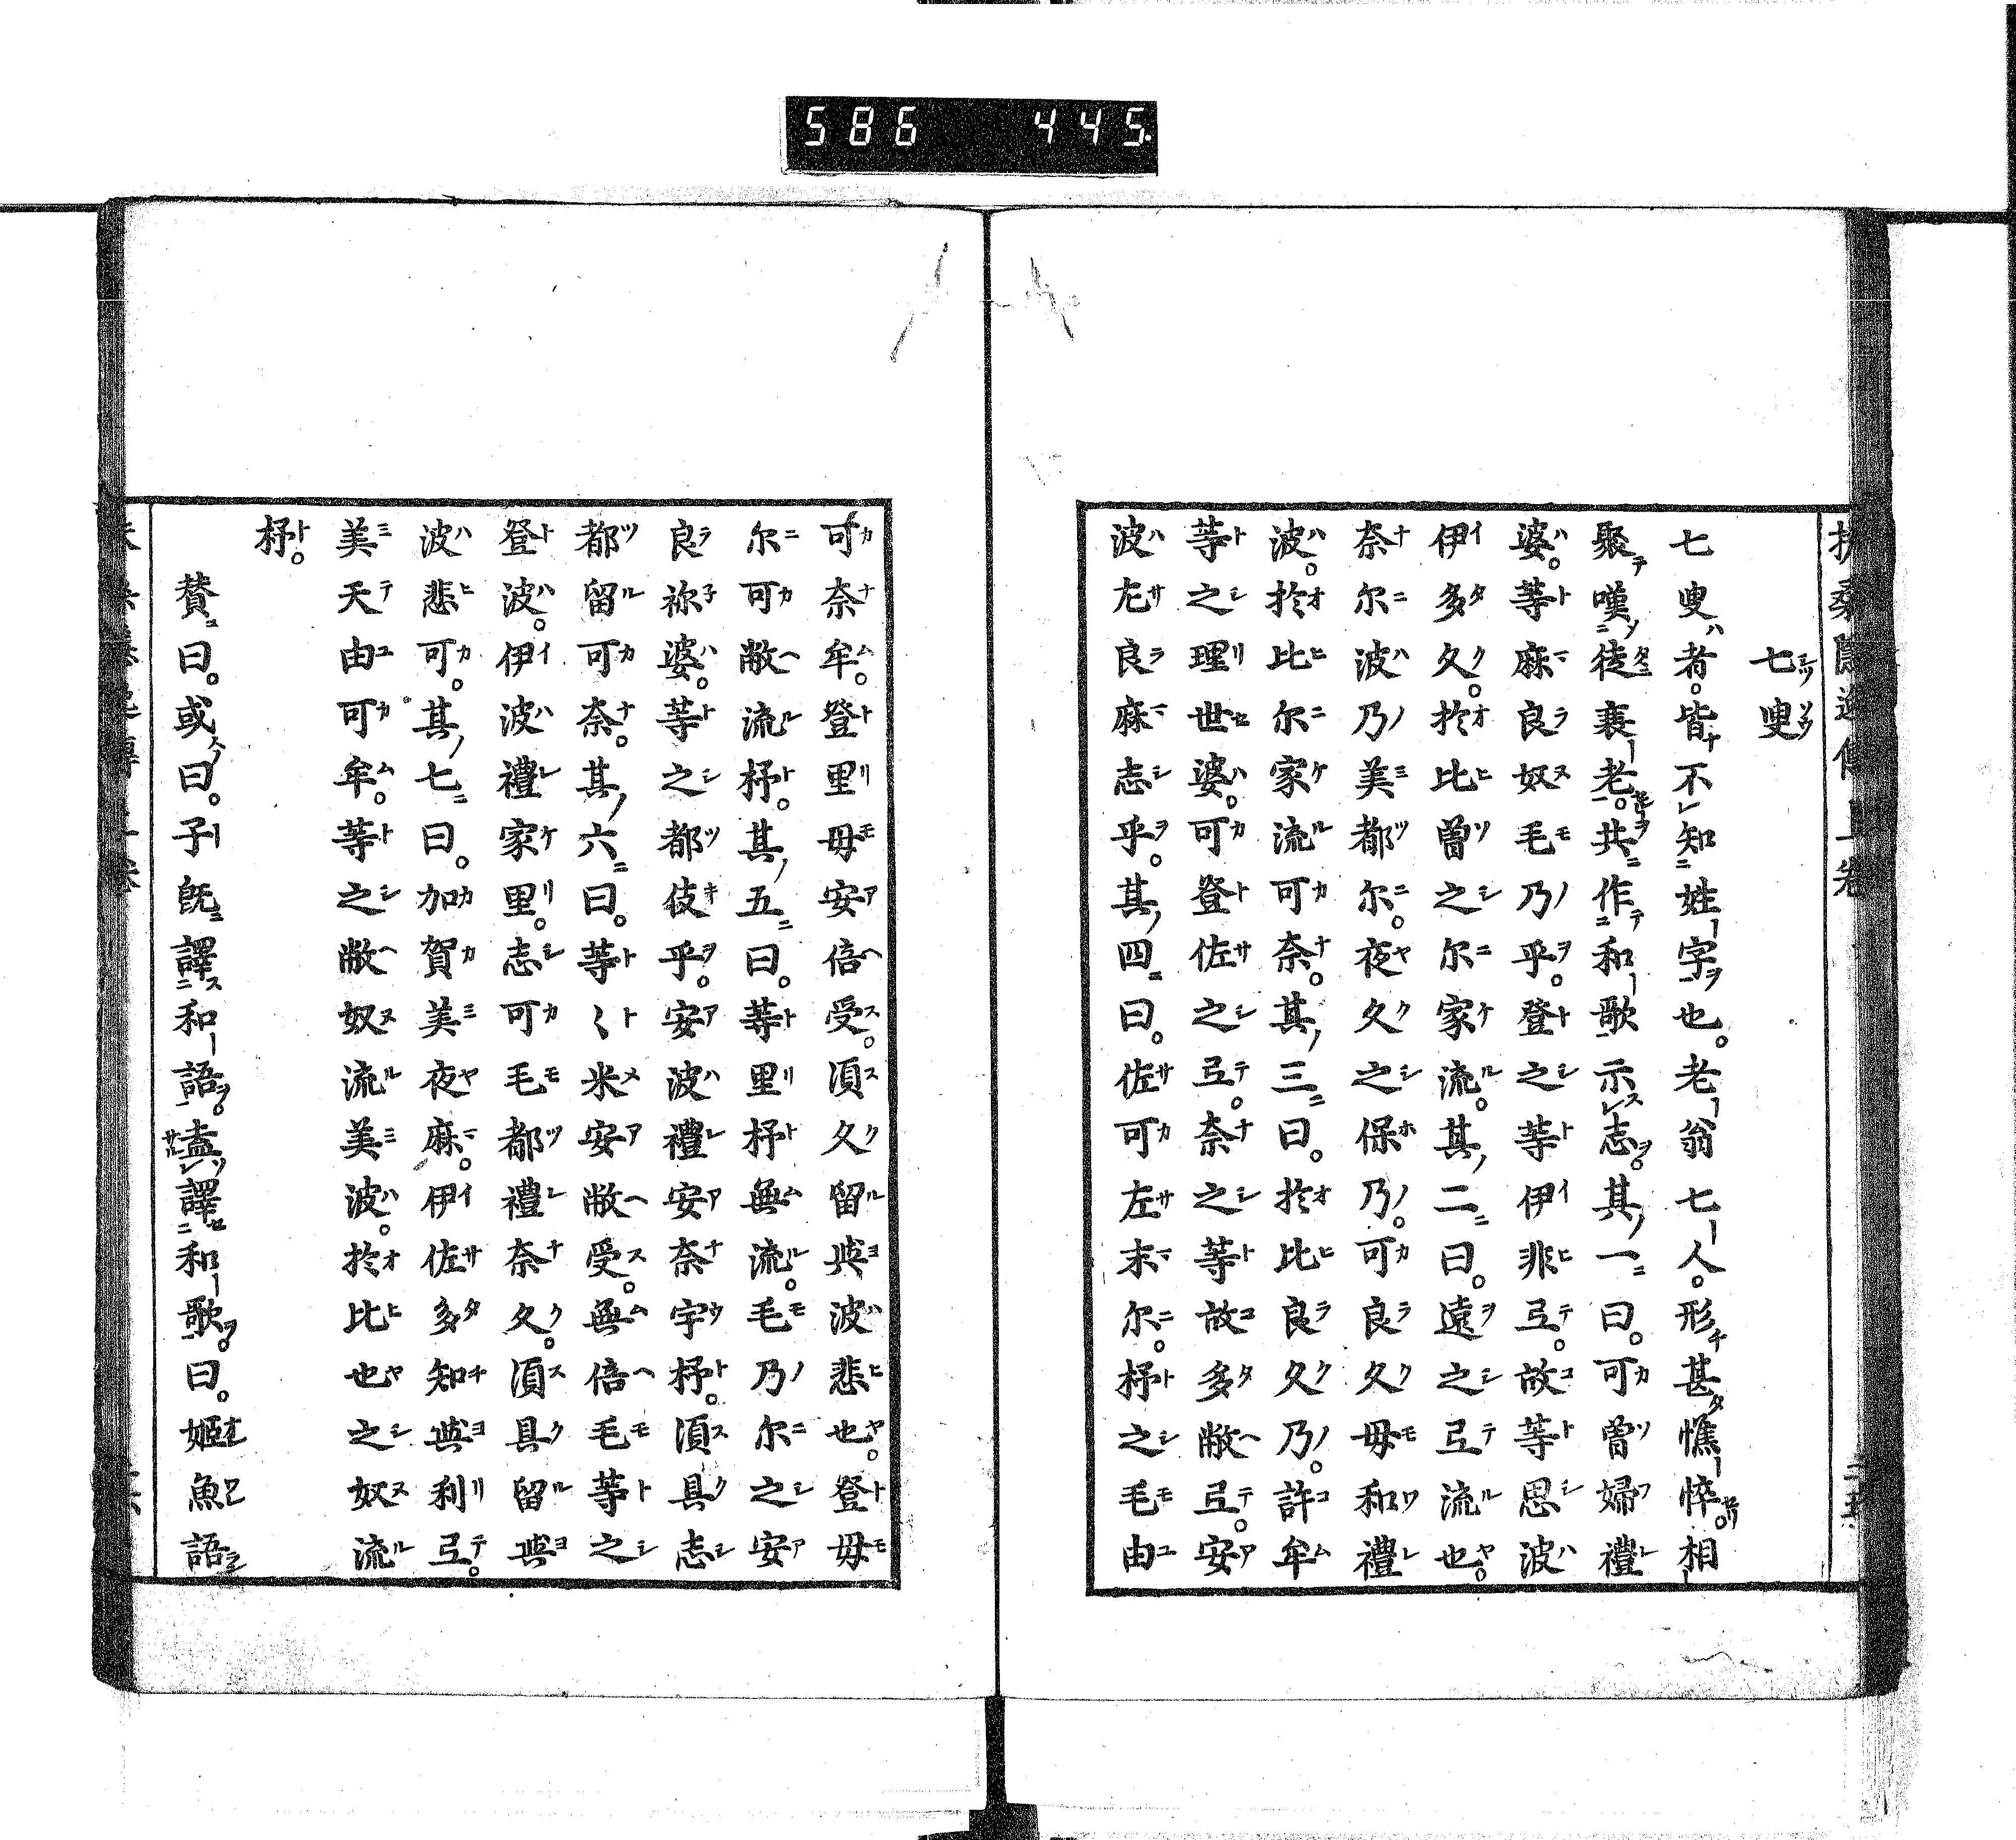 586 445
七叟
七叟者。皆不知姓字也。老翁七人。形甚憔悴。相
聚嘆徒衰老。共作和歌示志。其一曰。可曾婦禮
婆。等麻良奴毛乃乎。登之等伊非弖。故等思波
伊多久。於比曾之尓家流。其二曰。遠之弖流也。
奈尓波乃美都尓。夜久之保乃。可良久毋和禮
波。於比尓家流可奈。其三曰。於比良久乃。許牟
等之理世婆。可登佐之弖。奈之等故多敝弖。安
波左良麻志乎。其四曰。佐可左末尓。杼之毛由
可奈牟。登里毋安倍受。湏久留與波悲也。登毋
尓可敝流杼。其五曰。等里杼無流。毛乃尓之安
良祢婆。等之都伎乎。安波禮安奈宇杼。湏具志
都留可奈。其六曰。等〻米安敝受。無倍毛等之
登波。伊波禮家里。志可毛都禮奈久。湏具留與
波悲可。其七曰。加賀美夜麻。伊佐多知與利弖。
美天由可牟。等之敝奴流美波。於比也之奴流
杼。
賛曰。或曰。子既譯和語。盍譯和歌。曰。姬魚語